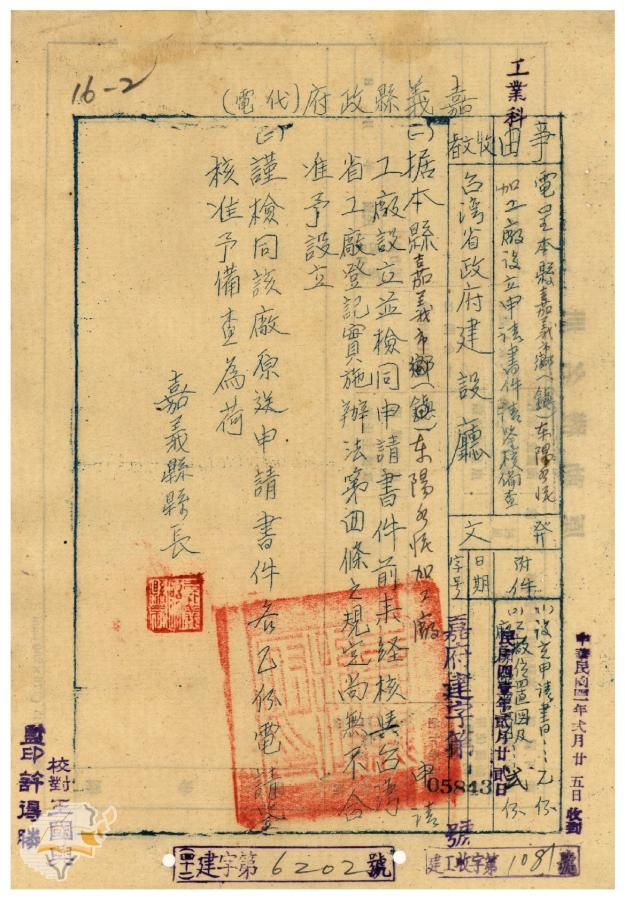 16-2
工業科
嘉義縣政府(代電)
事由
電呈本縣嘉義市鄉(鎮)东陽水泥
加工廠設立申請書件請鑒核備查
收文者
台湾省政府建設廳
發文
附件
(1)設立申請書……乙份
日期
民國四壹年貳月廿貳日
字号
嘉府建字第05843號
(一)据本縣嘉義市鄉(鎮)东陽水泥加工廠申請
工廠設立並檢同申請書件前来経核與台湾
省工廠登記實施辦法第四條之規定尚無不合
准予設立
(二)謹檢同該廠原送申請書件各乙份電請鑒
核准予備查為荷
嘉義縣縣長
中華民國四一年弍月廿五日收到
校對
監印許得勝
(四十一)建字第6202號
建工收字第1081號